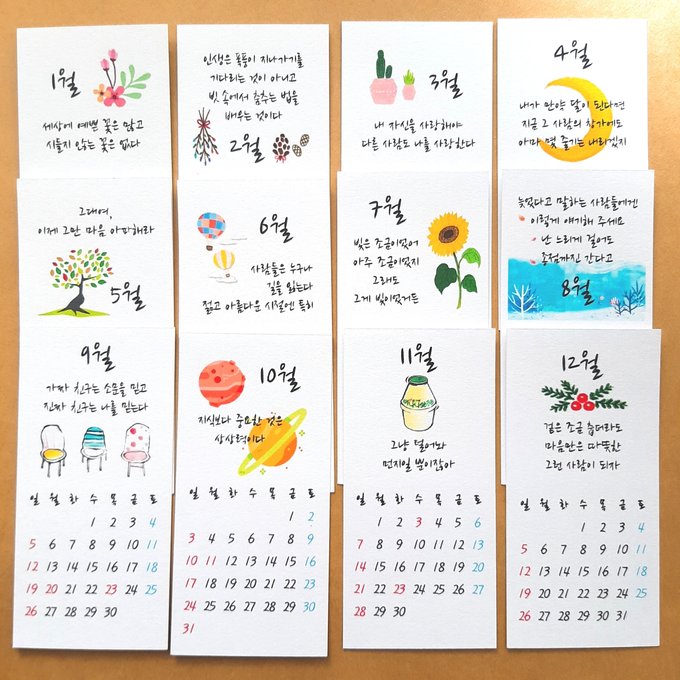 1월
세상에 예쁜 꽃은 많고
시들지 않는 꽃은 없다
인생은 폭풍이 지나가기를
기다리는 것이 아니고
빗 속에서 춤추는 법을
배우는 것이다
2월
3월
내 자신을 사랑해야
다른 사람도 나를 사랑한다
4월
내가 만약 달이 된다면
지금 그 사람의 창가에도
아마 몇 줄기는 내리겠지
그대여,
이제 그만 마음 아파해라
5월
6월
사람들은 누구나
길을 잃는다
젊고 아름다운 시절엔 특히
7월
빛은 조금이었어
아주 조금이었지
그래도
그게 빛이었거든
늦었다고 말하는 사람들에겐
이렇게 얘기해 주세요
난 느리게 걸어도
종점까진 간다고
8월
9월
가짜 친구는 소문을 믿고
진짜 친구는 나를 믿는다
일 월 화 수 목 금 토
1 2 3 4
5 6 7 8 9 10 11
12 13 14 15 16 17 18
19 20 21 22 23 24 25
26 27 28 29 30
10월
지식보다 중요한 것은
상상력이다
일 월 화 수 목 금 토
1 2
3 4 5 6 7 8 9
10 11 12 13 14 15 16
17 18 19 20 21 22 23
24 25 26 27 28 29 30
31
11월
그냥 털어놔
먼지일 뿐이잖아
일 월 화 수 목 금 토
1 2 3 4 5 6
7 8 9 10 11 12 13
14 15 16 17 18 19 20
21 22 23 24 25 26 27
28 29 30
12월
겉은 조금 춥더라도
마음만은 따뜻한
그런 사람이 되자
일 월 화 수 목 금 토
1 2 3 4
5 6 7 8 9 10 11
12 13 14 15 16 17 18
19 20 21 22 23 24 25
26 27 28 29 30 31